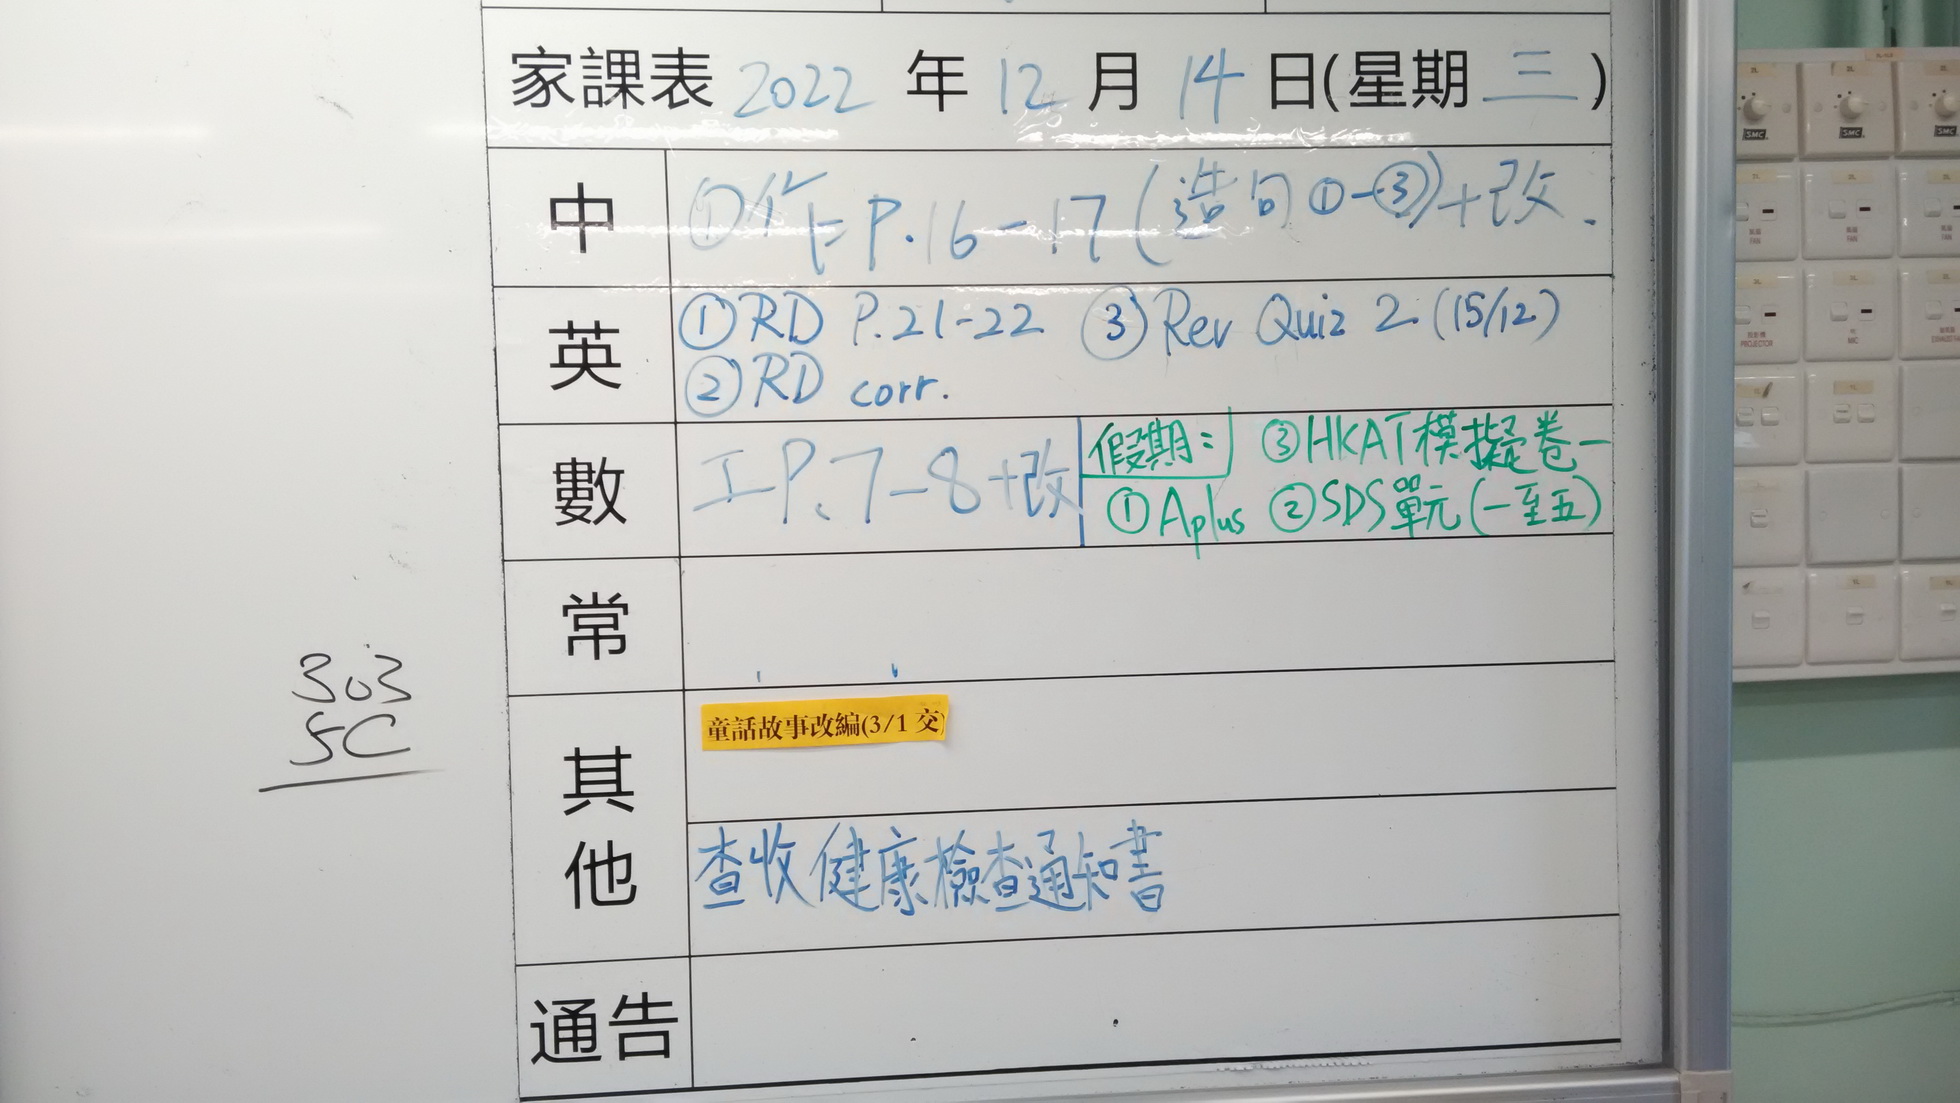 家課表 2022 年 12 月 14 日(星期 三 )
中 ①作 P.16-17 (造句①-③)+改.
英 ①RD P.21-22 ③Rev Quiz 2 (15/12)
②RD corr.
數 工 P.7-8+改
假期: ③HKAT模擬卷一
①Aplus ②SDS單元(一至五)
常
其他
童話故事改編(3/1 交)
查收健康檢查通知書
通告
303
5C
SMC
SMC
SMC
FAN
FAN
FAN
PROJECTOR
MIC